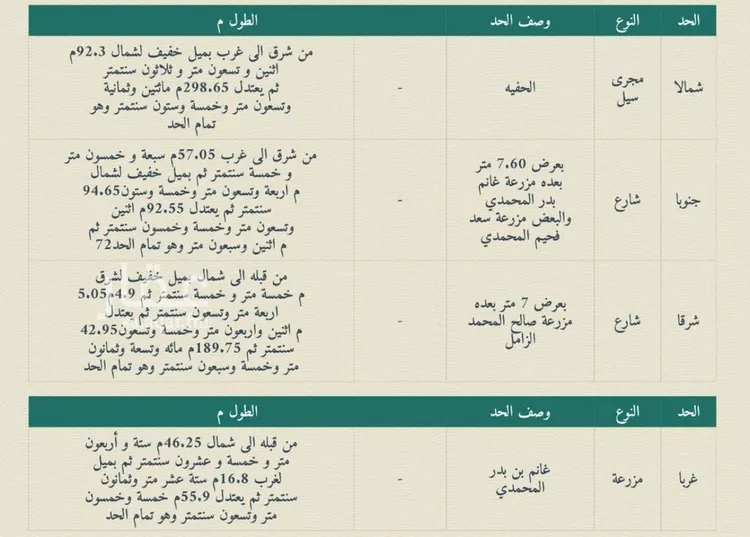 الحد النوع وصف الحد الطول م
شمالا مجرى سيل الحفيه - من شرق الى غرب بميل خفيف لشمال 92.3م
اثنين و تسعون متر و ثلاثون سنتمتر
ثم يعتدل 298.65م مائتين وثمانية
وتسعون متر وخمسة وستون سنتمتر وهو
تمام الحد
جنوبا شارع بعرض 7.60 متر
بعده مزرعة غانم
بدر المحمدي
والبعض مزرعة سعد
فحيم المحمدي
-
من شرق الى غرب 57.05م سبعة و خمسون متر
و خمسة سنتمتر ثم بميل خفيف لشمال
م اربعة وتسعون متر وخمسة وستون94.65
سنتمتر ثم يعتدل 92.55م اثنين
وتسعون متر وخمسة وخمسون سنتمتر ثم
م اثنين وسبعون متر وهو تمام الحد72
شرقا شارع بعرض 7 متر بعده
مزرعة صالح المحمد
الزامل
-
من قبله الى شمال بميل خفيف لشرق
م خمسة متر و خمسة سنتمتر ثم 4.9م5.05
اربعة متر وتسعون سنتمتر ثم يعتدل
م اثنين واربعون متر وخمسة وتسعون42.95
سنتمتر ثم 189.75م مائه وتسعة وثمانون
متر وخمسة وسبعون سنتمتر وهو تمام الحد
الحد النوع وصف الحد الطول م
غربا مزرعة غانم بن بدر
المحمدي
-
من قبله الى شمال 46.25م ستة و أربعون
متر و خمسة و عشرون سنتمتر ثم بميل
لغرب 16.8م ستة عشر متر وثمانون
سنتمتر ثم يعتدل 55.9م خمسة وخمسون
متر وتسعون سنتمتر وهو تمام الحد